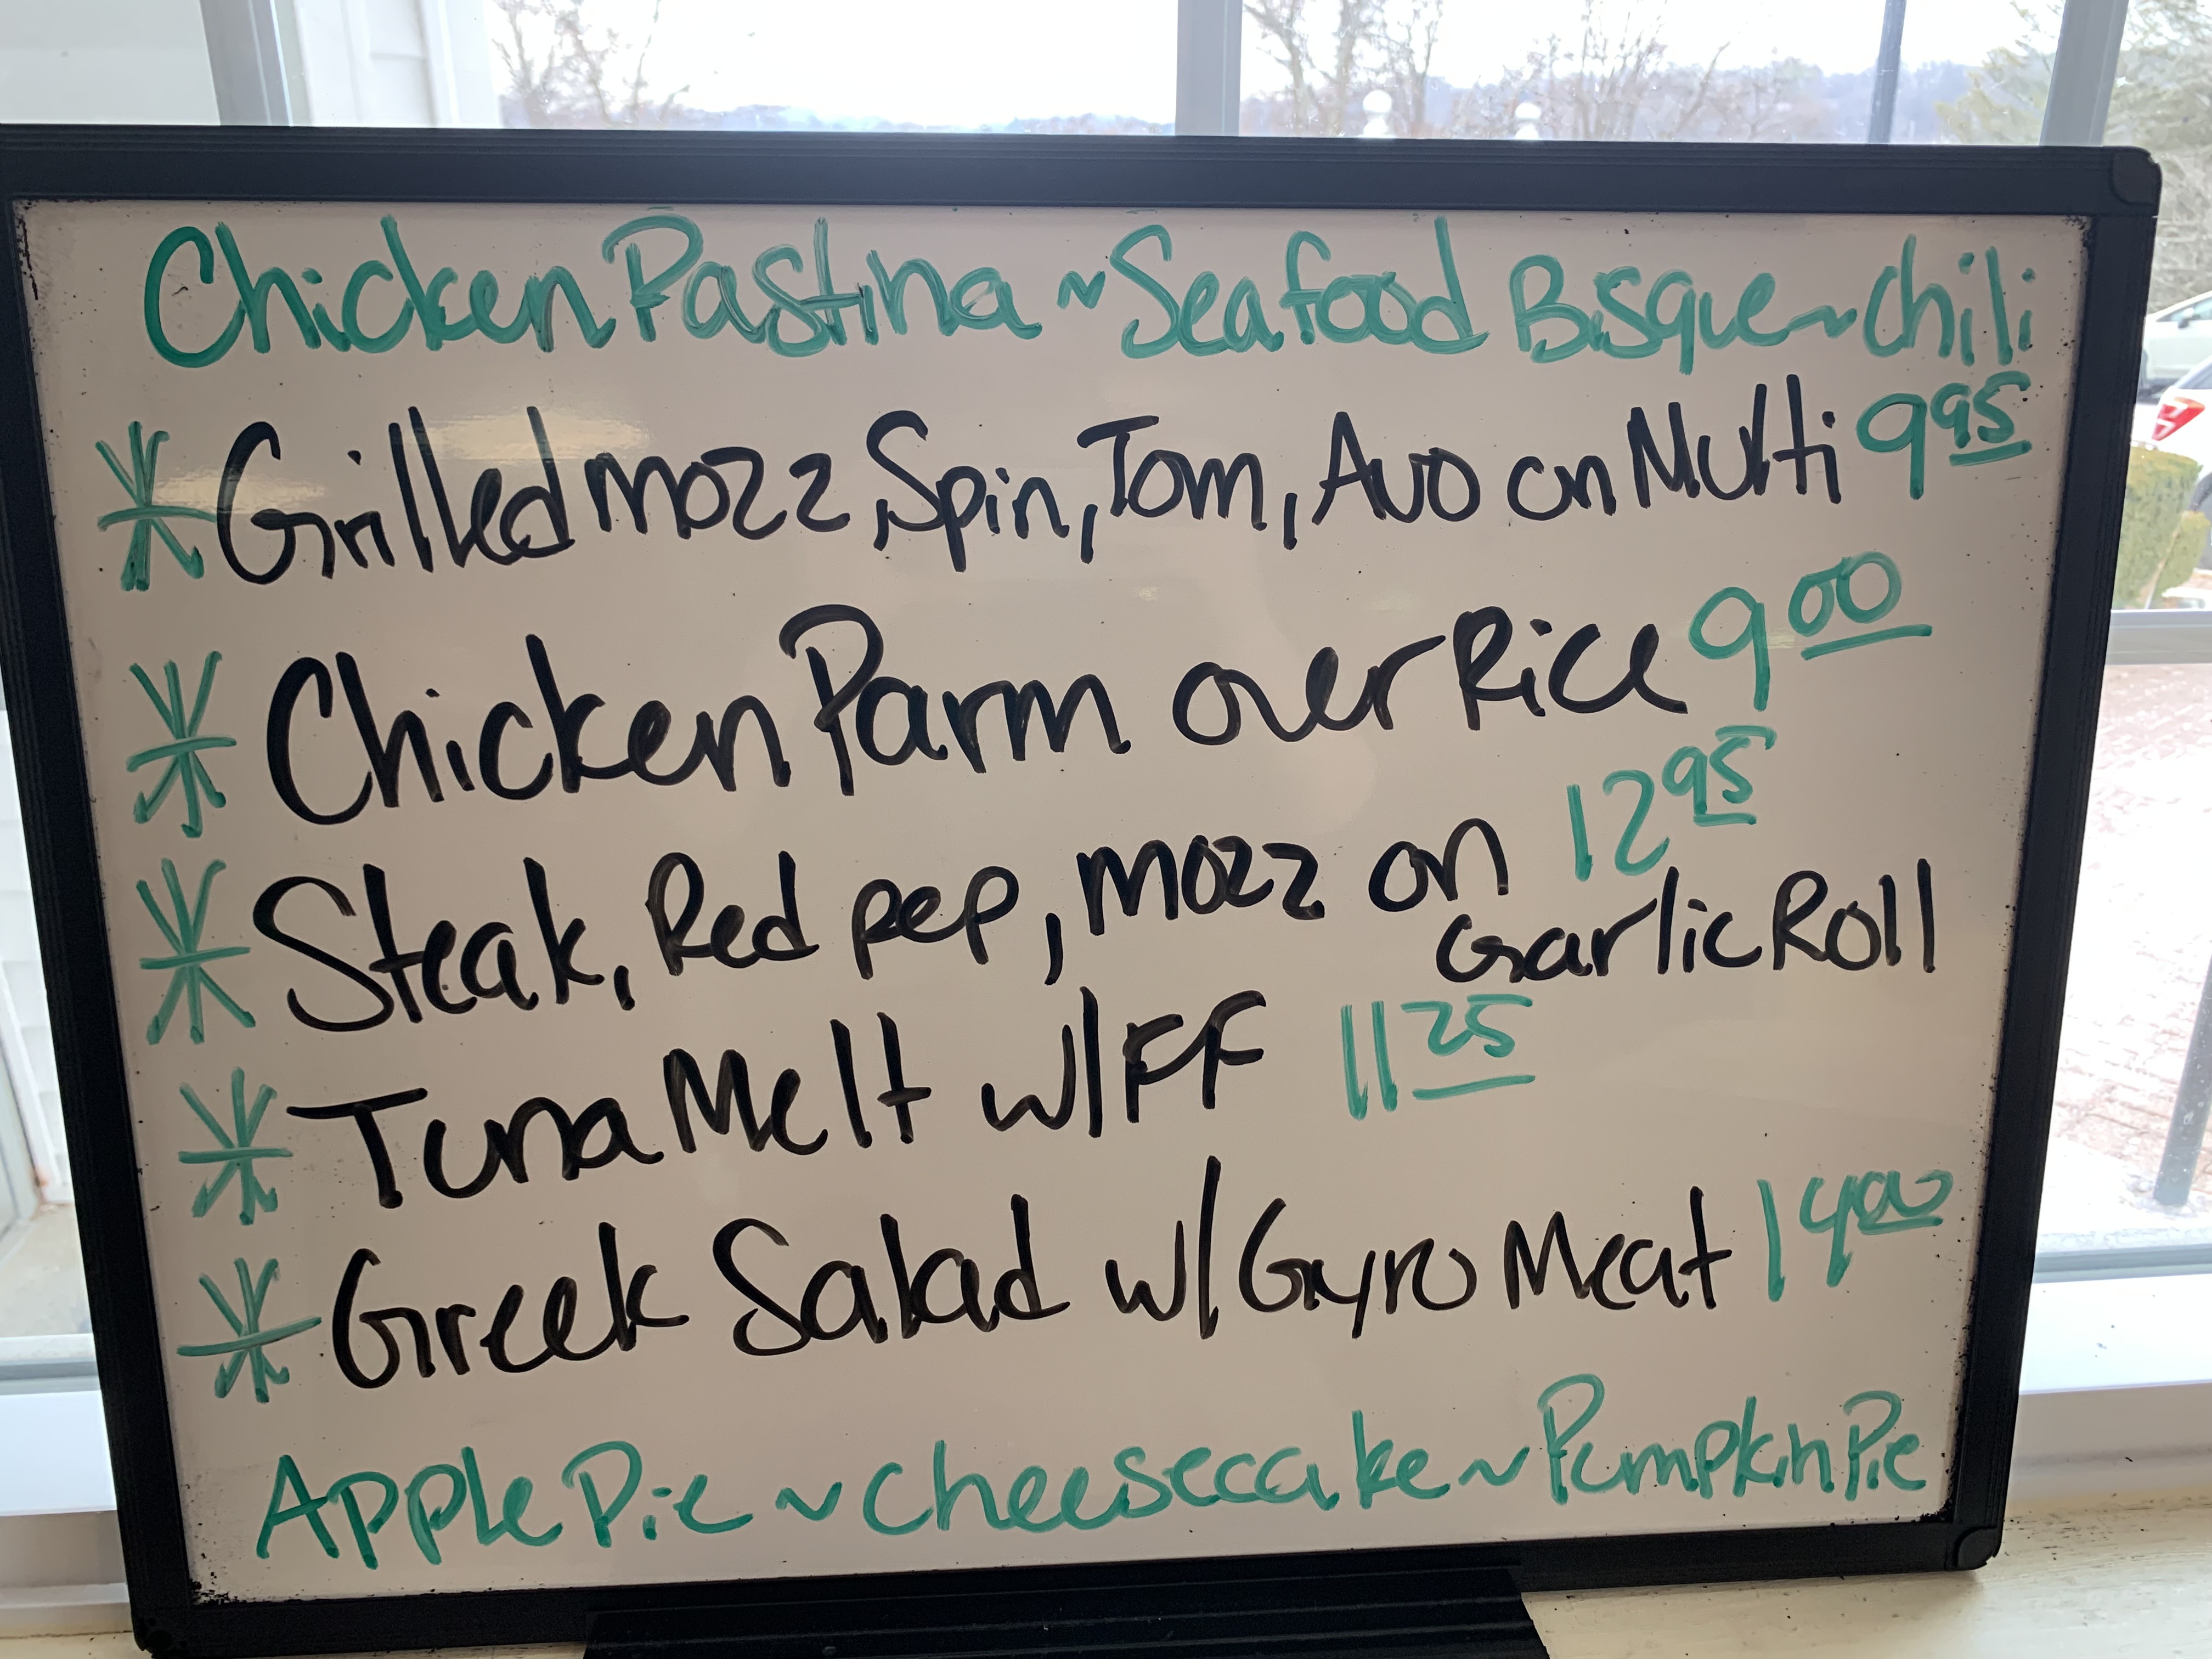 Chicken Pastina ~ Seafood Bisque ~ chili
* Grilled mozz, Spin, Tom, Avo on Multi 9 95
* Chicken Parm over Rice 9 00
* Steak, Red pep, mozz on 12 95
Garlic Roll
* Tuna Melt w/ FF 11 25
* Greek Salad w/ Gyro Meat 14 00
Apple Pie ~ Cheesecake ~ Pumpkin Pie